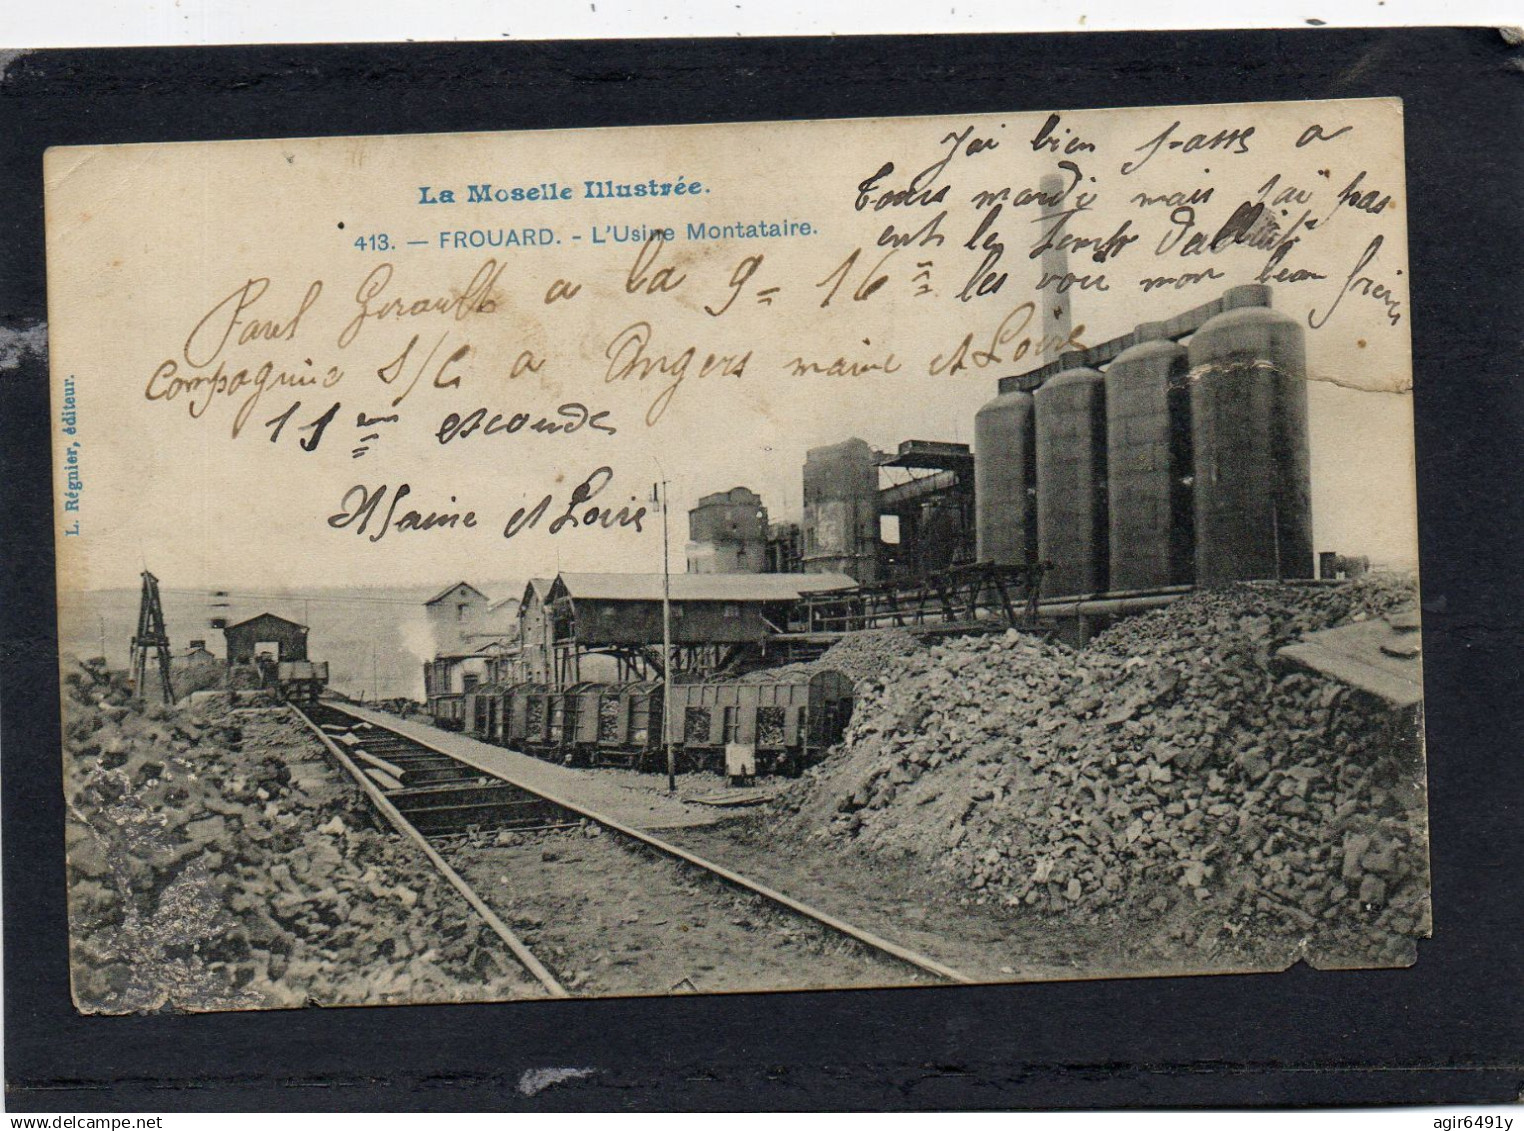 La Moselle Illustrée.
413. — FROUARD. - L'Usine Montataire.
L. Régnier, éditeur.
J'ai bien passe a
Tours mardi mais j'ai pas
eut le temps d'allait
les voir mon beau frere
Paul Girault a la 9= 16=
Compagnie S/C a Angers maine et Loire
11 eme esconde
Maine et Loire
delcampe.net
agir6491y